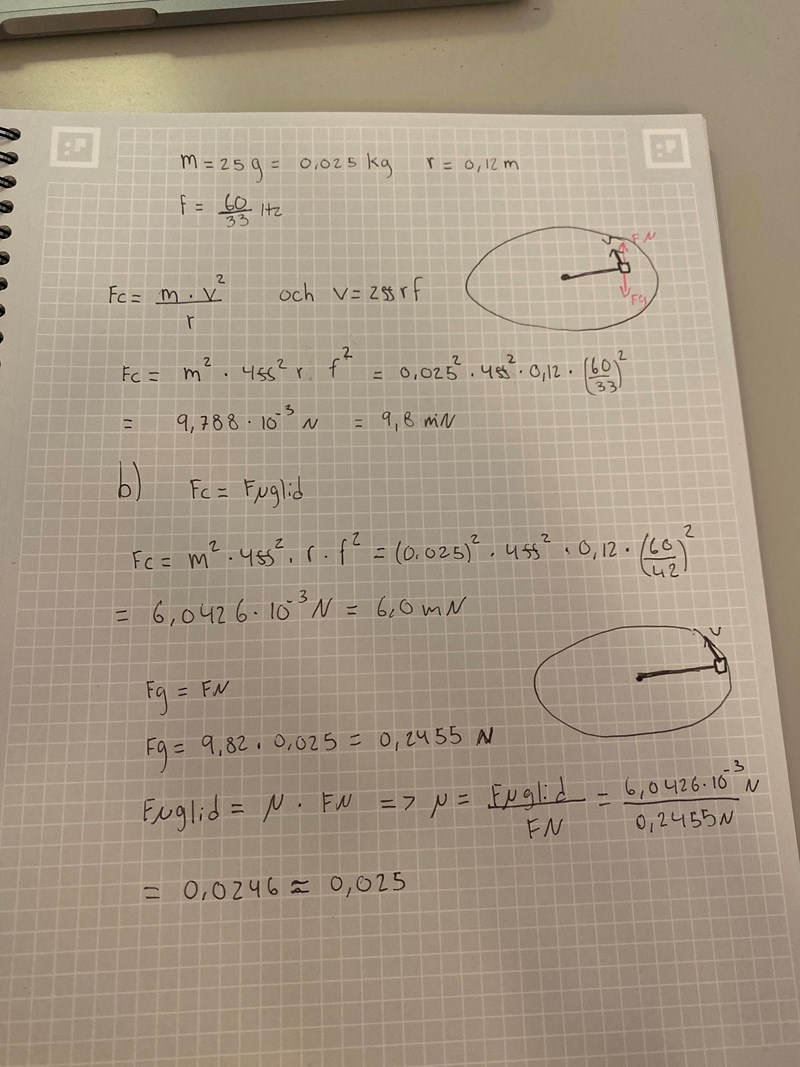 m = 25 g = 0,025 kg    r = 0,12 m
f = 60/33 Hz
FN
v
Fg
Fc = m · v²/r    och    v = 2πrf
Fc = m² · 4π² r f² = 0,025² · 4π² · 0,12 · (60/33)²
= 9,788 · 10⁻³ N = 9,8 mN
b)    Fc = Fμglid
Fc = m² · 4π² · r · f² = (0.025)² · 4π² · 0,12 · (60/42)²
= 6,0426 · 10⁻³ N = 6,0 mN
v
Fg = FN
Fg = 9,82 · 0,025 = 0,2455 N
Fμglid = μ · FN => μ = Fμglid/FN = 6,0426·10⁻³ N/0,2455 N
= 0,0246 ≈ 0,025